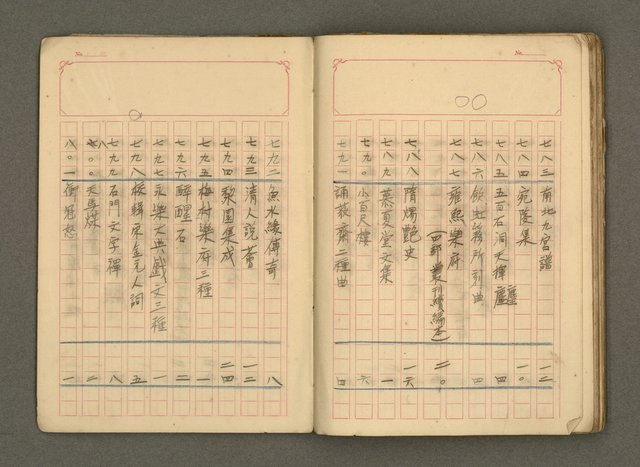 No.
七八三 南北九宮譜 一二
七八四 宛陵集 一〇
七八五 五百石洞天揮麈 四
七八六 飲虹簃所刻曲 四
七八七 雍熙樂府
(四部叢刊續編本) 二〇
七八八 隋煬艷史 一六
七八九 慕夏堂文集 一
七九〇 小百尺樓 六
七九一 誦荻齋二種曲 四
No.
七九二 魚水緣傳奇 八
七九三 清人說薈 一二
七九四 梨園集成 二四
七九五 梅村樂府二種 一
七九六 醉醒石 二
七九七 永樂大典戲文三種 一
七九八 校輯宋金元人詞 五
七九九 石門文字禪 八
八〇〇 天馬媒 二
八〇一 衝冠怒 一